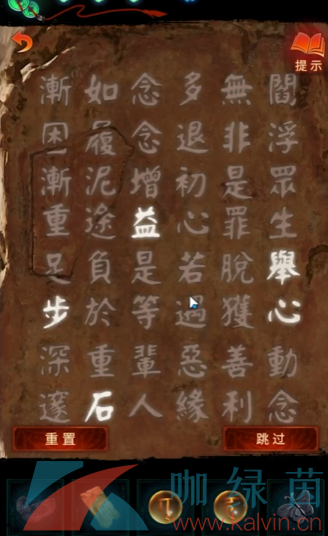 提示
閻浮眾生舉心動念
無非是罪脫獲善利
多退初心若遇惡緣
念念增益是等輩人
如履泥途負於重石
漸困漸重足步深邃
重置
跳过
咖绿茵
www.kalvin.cn